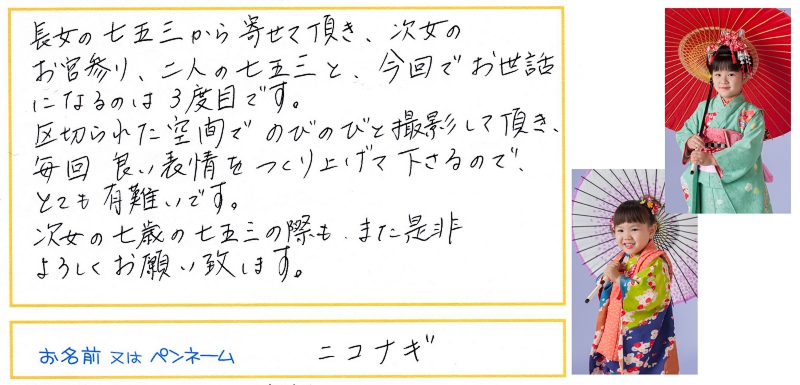 長女の七五三から寄せて頂き、次女の
お宮参り、二人の七五三と、今回でお世話
になるのは3度目です。
区切られた空間でのびのびと撮影して頂き、
毎回良い表情をつくり上げて下さるので、
とても有難いです。
次女の七歳の七五三の際も、また是非
よろしくお願い致します。
お名前 又は ペンネーム ニコナギ